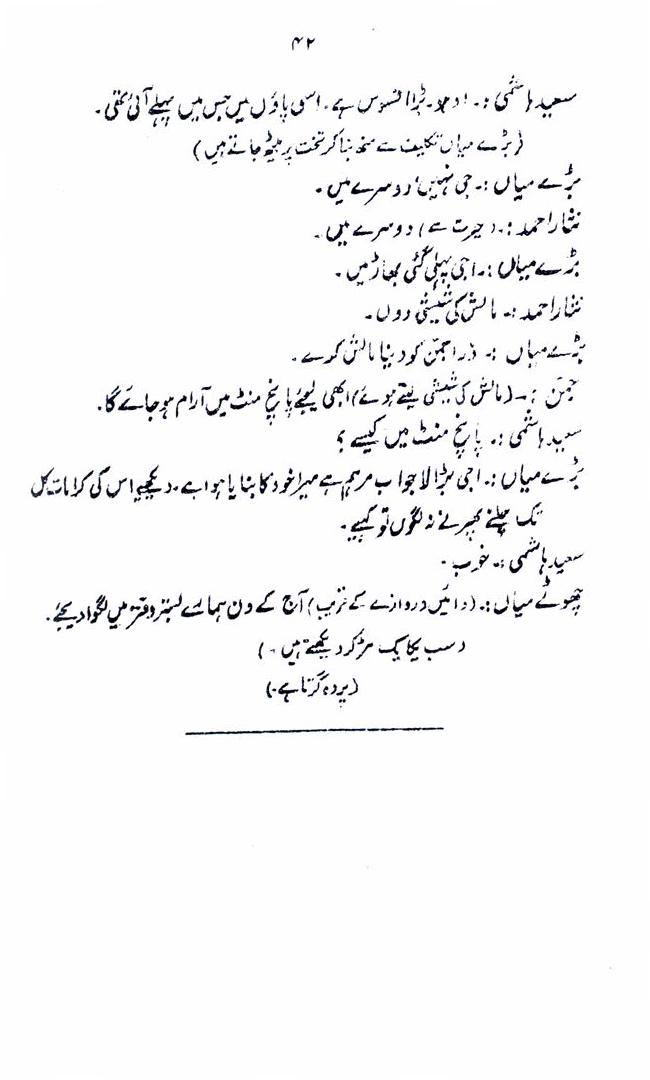 ۴۲
سعید ہاشمی :۔ اوہو۔ بڑا افسوس ہے۔ اسی پاؤں میں جس میں پہلے آئی تھی۔
(بڑے میاں تکلیف سے منھ بنا کر تخت پر بیٹھ جاتے ہیں)
بڑے میاں :۔ جی نہیں، دوسرے میں۔
نثار احمد :۔ (حیرت سے) دوسرے میں۔
بڑے میاں :۔ اجی پہلی گئی بھاڑ میں۔
نثار احمد :۔ مالش کی شیشی دوں۔
بڑے میاں :۔ ذرا جمّن کو دینا مالش کر دے۔
جمّن :۔ (مالش کی شیشی لیتے ہوئے) ابھی لیجئے پانچ منٹ میں آرام ہو جائے گا۔
سعید ہاشمی :۔ پانچ منٹ میں کیسے؟
بڑے میاں :۔ اجی بڑا لاجواب مرہم ہے میرا خود کا بنایا ہوا ہے۔ دیکھیے اس کی کرامات کل
تک چلنے پھرنے نہ لگوں تو کہیے۔
سعید ہاشمی :۔ خوب۔
چھوٹے میاں :۔ (دائیں دروازے کے قریب) آج کے دن ہمارے بستر دفتر میں لگوا دیجئے۔
(سب یکایک مڑ کر دیکھتے ہیں۔)
(پردہ گرتا ہے۔)